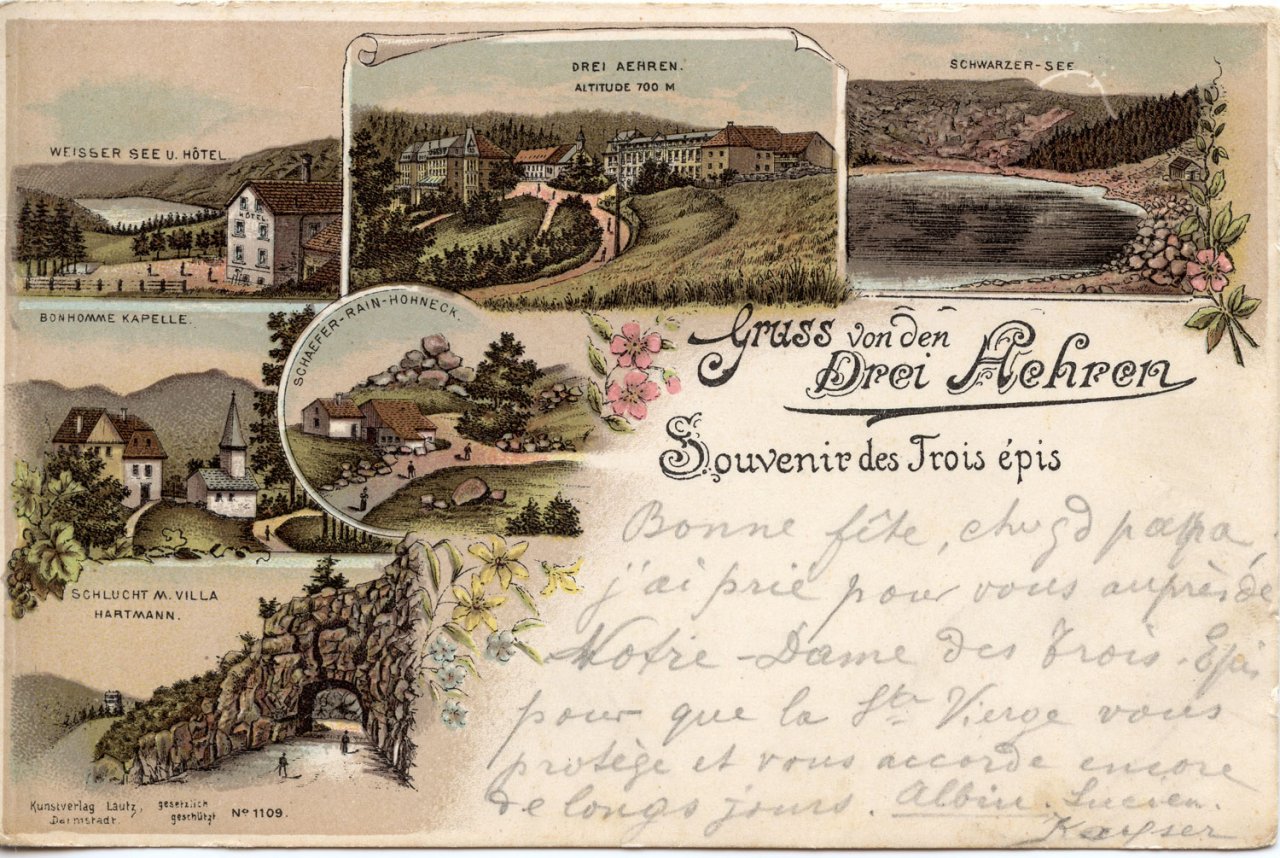 WEISSER SEE U. HÔTEL
HÔTEL
DREI AEHREN.
ALTITUDE 700 M
SCHWARZER-SEE
BONHOMME KAPELLE.
SCHAEFER-RAIN-HOHNECK.
Gruss von den
Drei Aehren
Souvenir des Trois épis
SCHLUCHT M. VILLA
HARTMANN.
Bonne fête, cher gd papa,
j'ai prié pour vous auprès de
Notre-Dame des Trois. Epis
pour que la Ste Vierge vous
protège et vous accorde encore
de longs jours. Albin. Lucien.
Kayser
Kunstverlag Lautz,
Darmstadt.
gesetzlich
geschützt
No 1109.